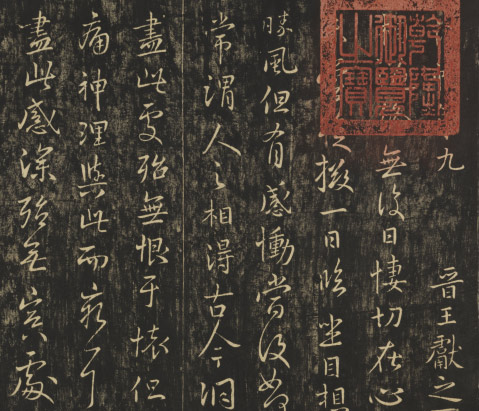 乾隆
御覽
之寶
九 晉王獻之
無復日悽切在心
掇一日臨坐目想
勝風但有感慟當復如
常謂人之相得古今洞
盡此處殆無恨于懷但
痛神理與此而窮耳
盡此感深殆無冥處